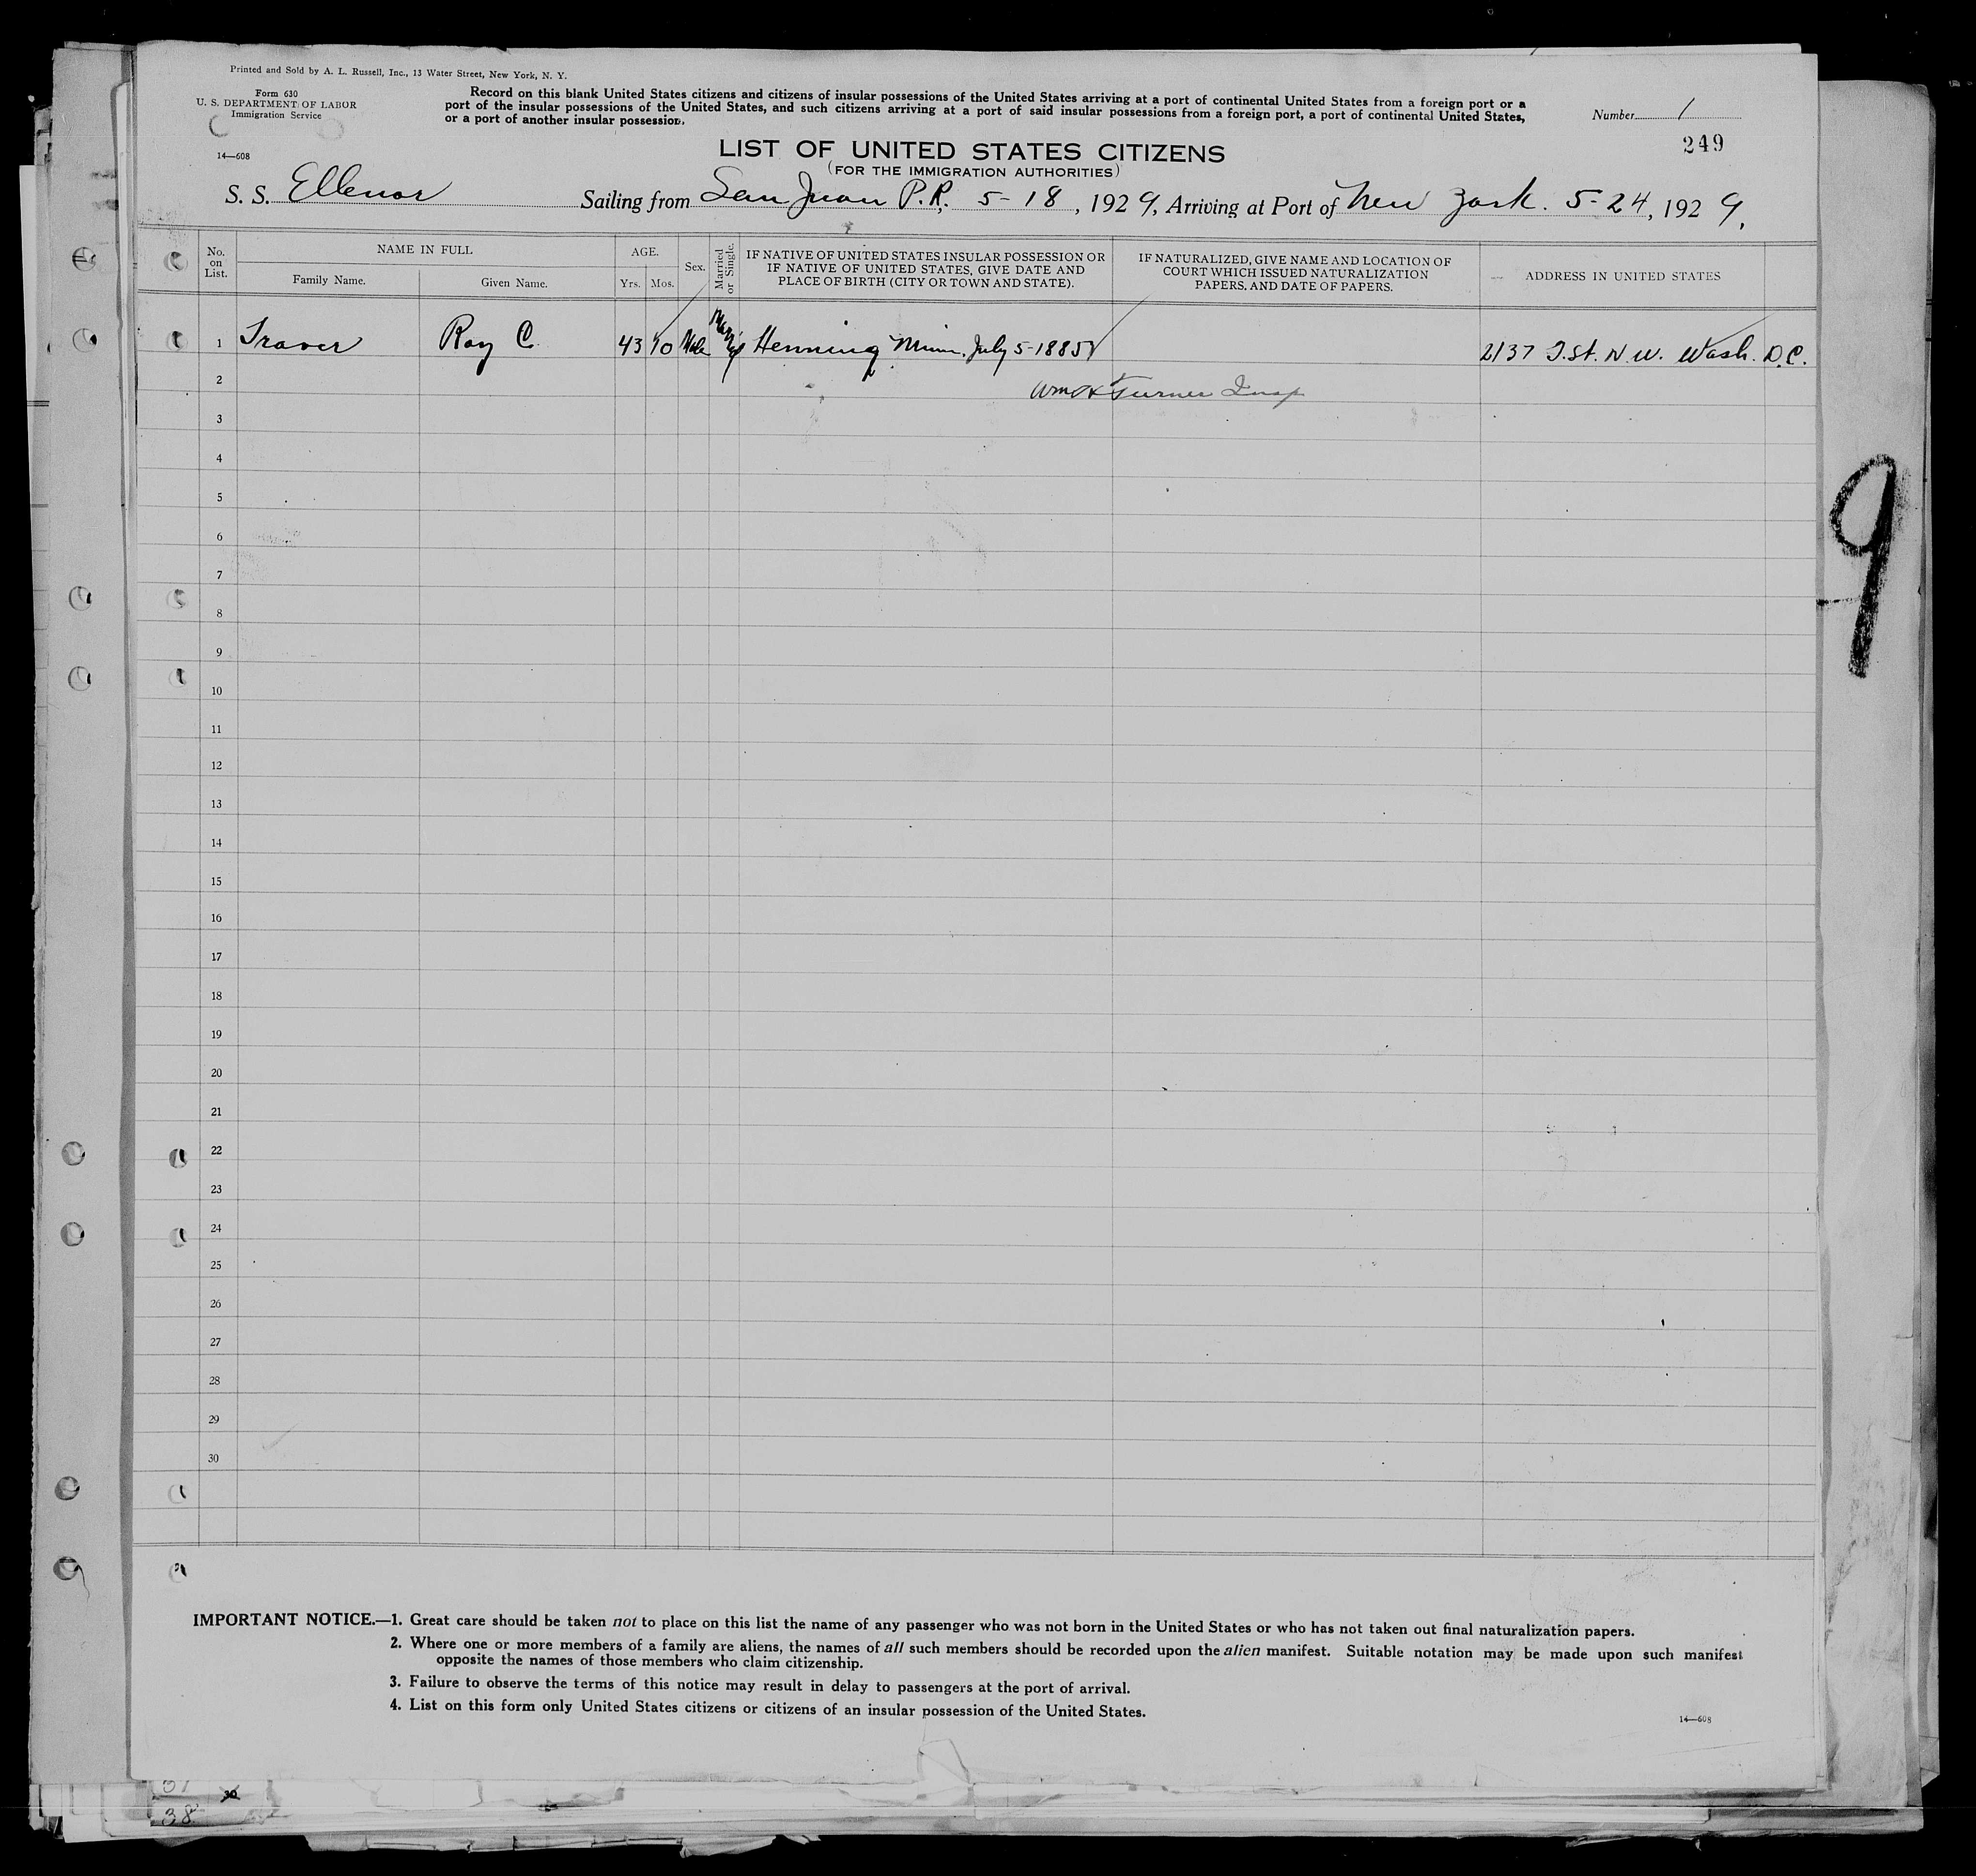 Printed and Sold by A. L. Russell, Inc., 13 Water Street, New York, N. Y.
Form 630
U. S. DEPARTMENT OF LABOR
Immigration Service
14—608
Record on this blank United States citizens and citizens of insular possessions of the United States arriving at a port of continental United States from a foreign port or a
port of the insular possessions of the United States, and such citizens arriving at a port of said insular possessions from a foreign port, a port of continental United States,
or a port of another insular possession.
Number 1
249
LIST OF UNITED STATES CITIZENS
(FOR THE IMMIGRATION AUTHORITIES)
S. S. Ellenor Sailing from San Juan P.R. 5-18, 1929, Arriving at Port of New York. 5-24, 1929.
No. on List.
NAME IN FULL
Family Name.
Given Name.
AGE.
Yrs.
Mos.
Sex.
Married or Single.
IF NATIVE OF UNITED STATES INSULAR POSSESSION OR
IF NATIVE OF UNITED STATES, GIVE DATE AND
PLACE OF BIRTH (CITY OR TOWN AND STATE).
IF NATURALIZED, GIVE NAME AND LOCATION OF
COURT WHICH ISSUED NATURALIZATION
PAPERS, AND DATE OF PAPERS.
ADDRESS IN UNITED STATES
1 Traver Roy C. 43 10 Male Henning Minn. July 5-1885 2137 I. St. N.W. Wash. D.C.
2 Turner Insp
3
4
5
6
7
8
9
10
11
12
13
14
15
16
17
18
19
20
21
22
23
24
25
26
27
28
29
30
9
IMPORTANT NOTICE.—1. Great care should be taken not to place on this list the name of any passenger who was not born in the United States or who has not taken out final naturalization papers.
2. Where one or more members of a family are aliens, the names of all such members should be recorded upon the alien manifest. Suitable notation may be made upon such manifest
opposite the names of those members who claim citizenship.
3. Failure to observe the terms of this notice may result in delay to passengers at the port of arrival.
4. List on this form only United States citizens or citizens of an insular possession of the United States.
14—608
38